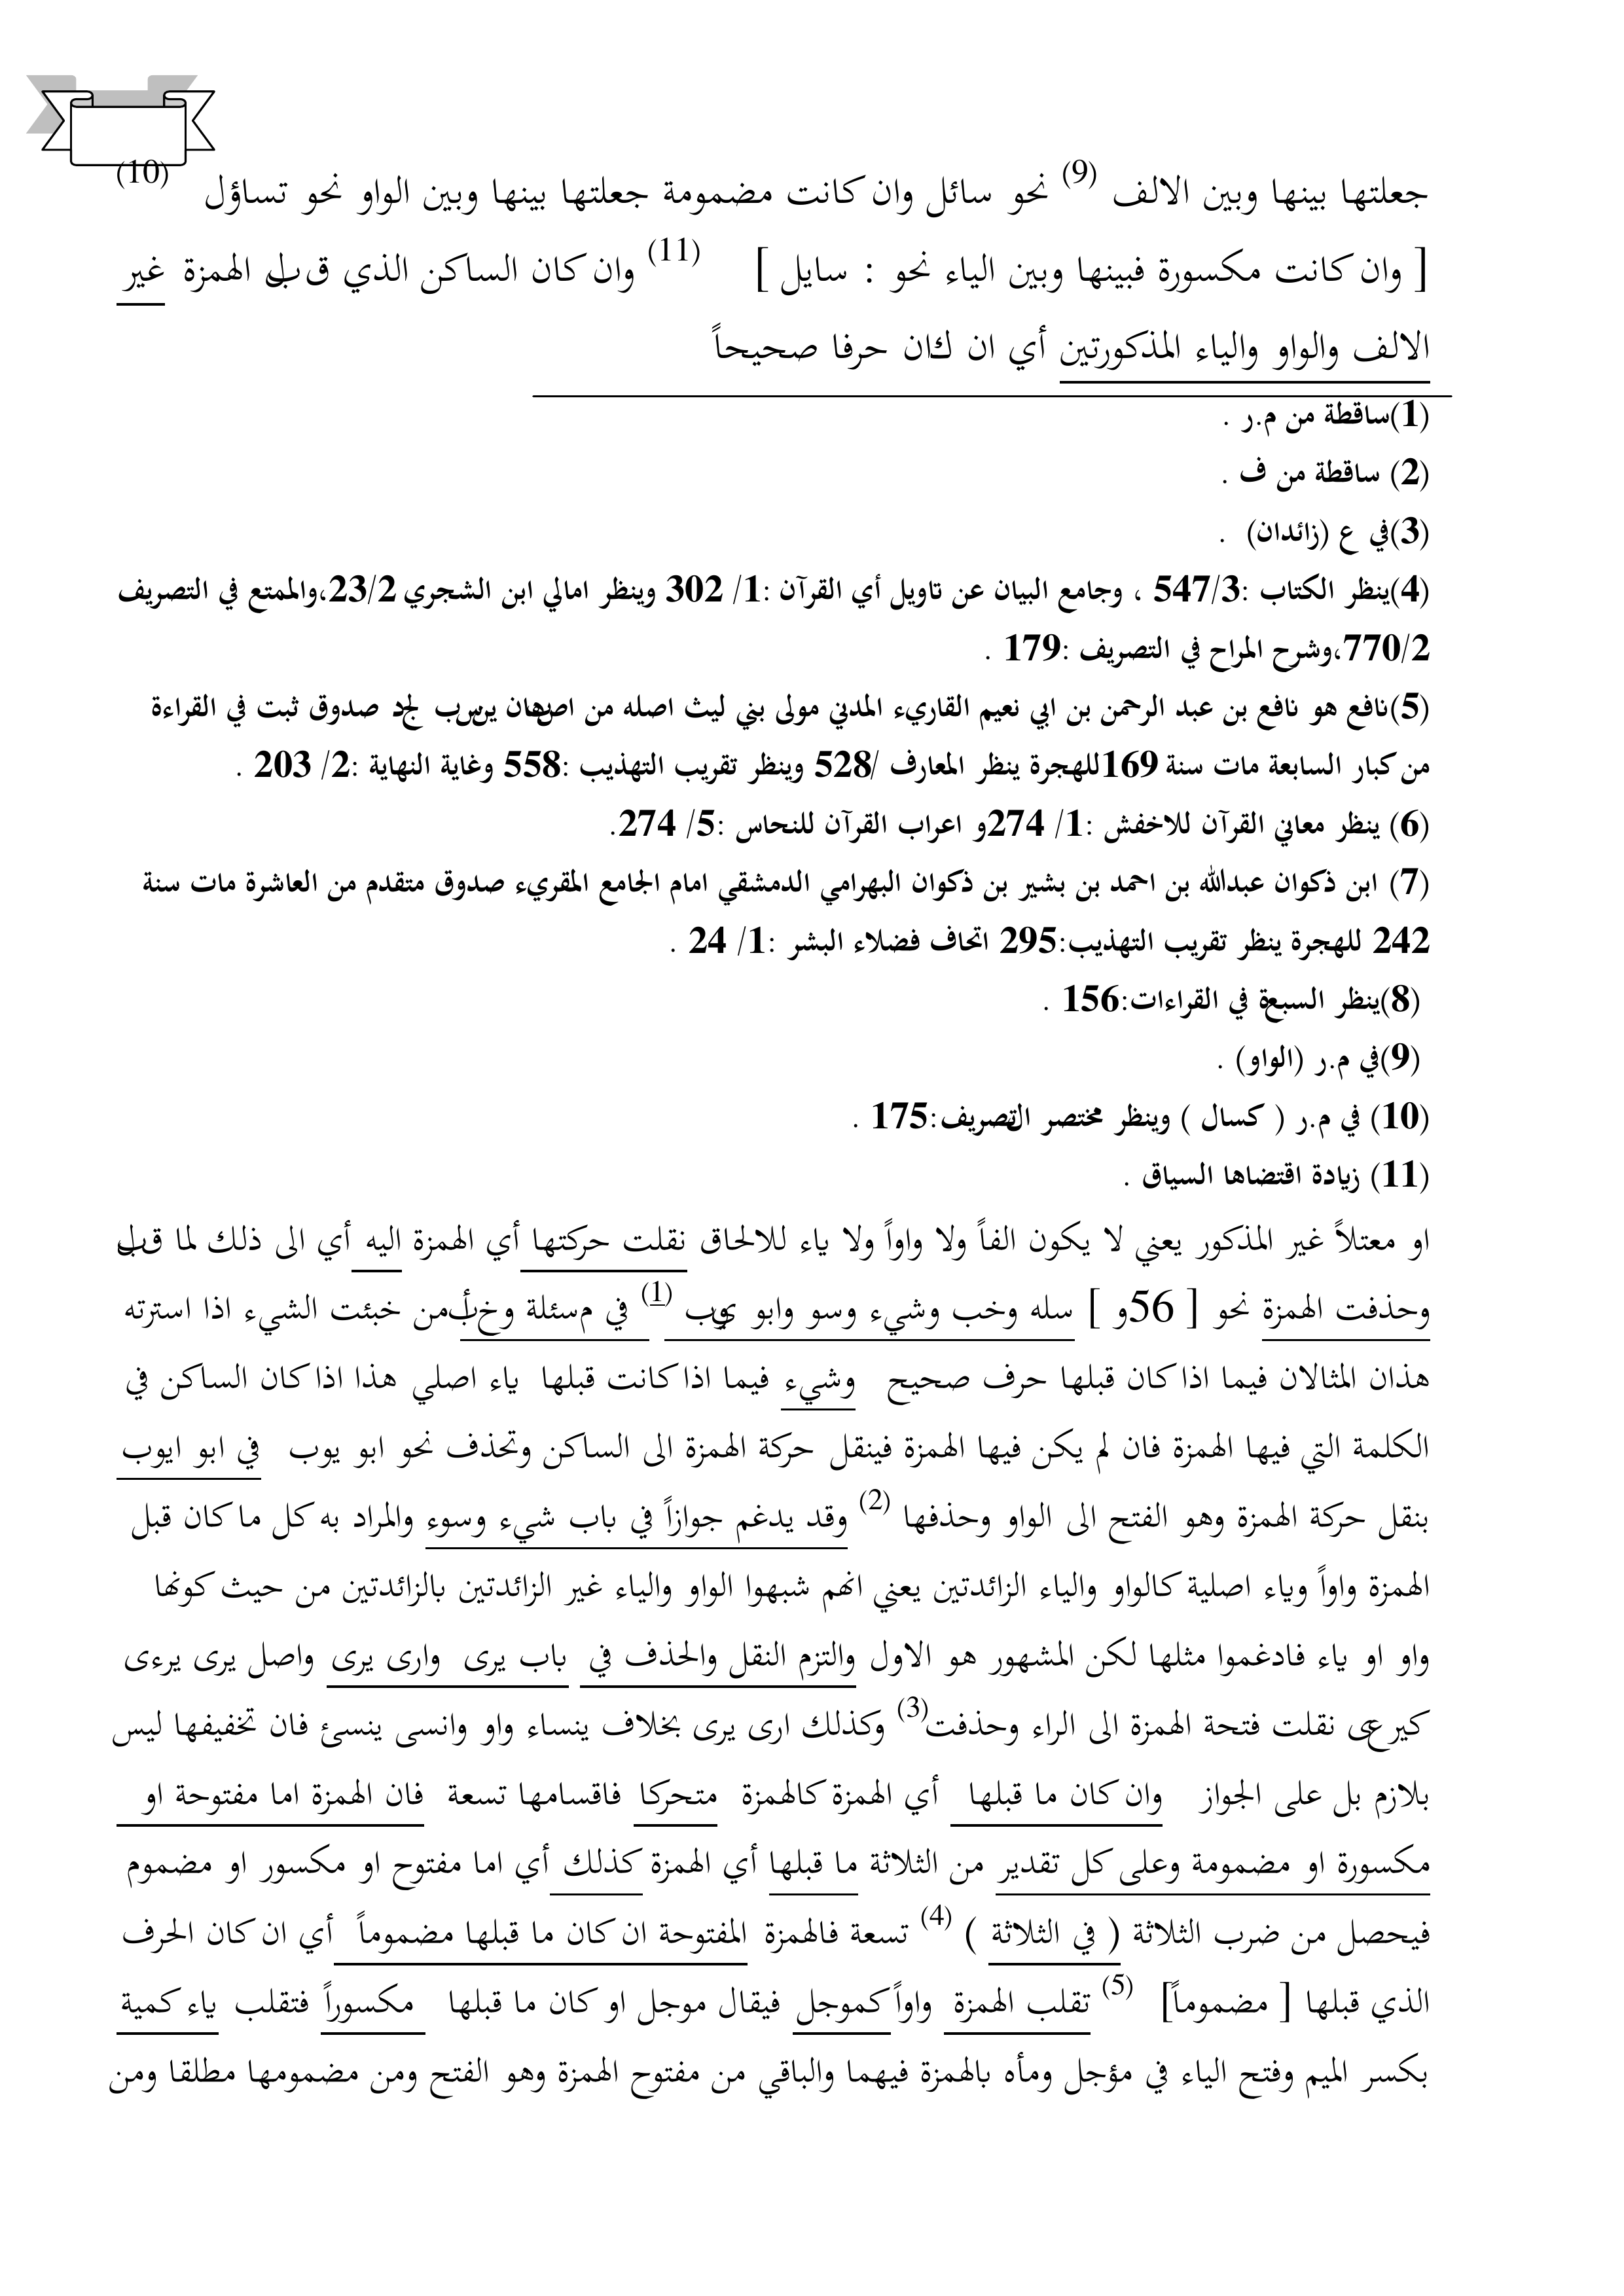 جعلتها بينها وبين الالف (9) نحو سائل وان كانت مضمومة جعلتها بينها وبين الواو نحو تساؤل (10)
[ وان كانت مكسورة فبينها وبين الياء نحو : سايل ] (11) وان كان الساكن الذي قبل الهمزة غير
الالف والواو والياء المذكورتين أي ان كان حرفا صحيحاً
(1)ساقطة من م.ر .
(2) ساقطة من ف .
(3)في ع (زائدان) .
(4)ينظر الكتاب :547/3 ، وجامع البيان عن تاويل أي القرآن :1/ 302 وينظر امالي ابن الشجري 23/2،والممتع في التصريف
770/2،وشرح المراح في التصريف :179 .
(5)نافع هو نافع بن عبد الرحمن بن ابي نعيم القاريء المدني مولى بني ليث اصله من اصبهان ينسب لجد صدوق ثبت في القراءة
من كبار السابعة مات سنة 169للهجرة ينظر المعارف /528 وينظر تقريب التهذيب :558 وغاية النهاية :2/ 203 .
(6) ينظر معاني القرآن للاخفش :1/ 274و اعراب القرآن للنحاس :5/ 274.
(7) ابن ذكوان عبدالله بن احمد بن بشير بن ذكوان البهرامي الدمشقي امام الجامع المقريء صدوق متقدم من العاشرة مات سنة
242 للهجرة ينظر تقريب التهذيب:295 اتحاف فضلاء البشر :1/ 24 .
(8)ينظر السبعة في القراءات:156 .
(9)في م.ر (الواو) .
(10) في م.ر ( كسال ) وينظر مختصر التصريف:175 .
(11) زيادة اقتضاها السياق .
او معتلاً غير المذكور يعني لا يكون الفاً ولا واواً ولا ياء للالحاق نقلت حركتها أي الهمزة اليه أي الى ذلك لما قبل
وحذفت الهمزة نحو [ 56و ] سله وخب وشيء وسو وابو يوب (1) في مسئلة وخبأ من خبئت الشيء اذا استرته
هذان المثالان فيما اذا كان قبلها حرف صحيح وشيء فيما اذا كانت قبلها ياء اصلي هذا اذا كان الساكن في
الكلمة التي فيها الهمزة فان لم يكن فيها الهمزة فينقل حركة الهمزة الى الساكن وتحذف نحو ابو يوب في ابو ايوب
بنقل حركة الهمزة وهو الفتح الى الواو وحذفها (2) وقد يدغم جوازاً في باب شيء وسوء والمراد به كل ما كان قبل
الهمزة واواً وياء اصلية كالواو والياء الزائدتين يعني انهم شبهوا الواو والياء غير الزائدتين بالزائدتين من حيث كونها
واو او ياء فادغموا مثلها لكن المشهور هو الاول والتزم النقل والحذف في باب يرى وارى يرى واصل يرى يرءى
كيرعى نقلت فتحة الهمزة الى الراء وحذفت(3) وكذلك ارى يرى بخلاف ينساء واو وانسى ينسئ فان تخفيفها ليس
بلازم بل على الجواز وان كان ما قبلها أي الهمزة كالهمزة متحركا فاقسامها تسعة فان الهمزة اما مفتوحة او
مكسورة او مضمومة وعلى كل تقدير من الثلاثة ما قبلها أي الهمزة كذلك أي اما مفتوح او مكسور او مضموم
فيحصل من ضرب الثلاثة ( في الثلاثة ) (4) تسعة فالهمزة المفتوحة ان كان ما قبلها مضموماً أي ان كان الحرف
الذي قبلها [ مضموماً] (5) تقلب الهمزة واواً كموجل فيقال موجل او كان ما قبلها مكسوراً فتقلب ياء كمية
بكسر الميم وفتح الياء في مؤجل ومأه بالهمزة فيهما والباقي من مفتوح الهمزة وهو الفتح ومن مضمومها مطلقا ومن